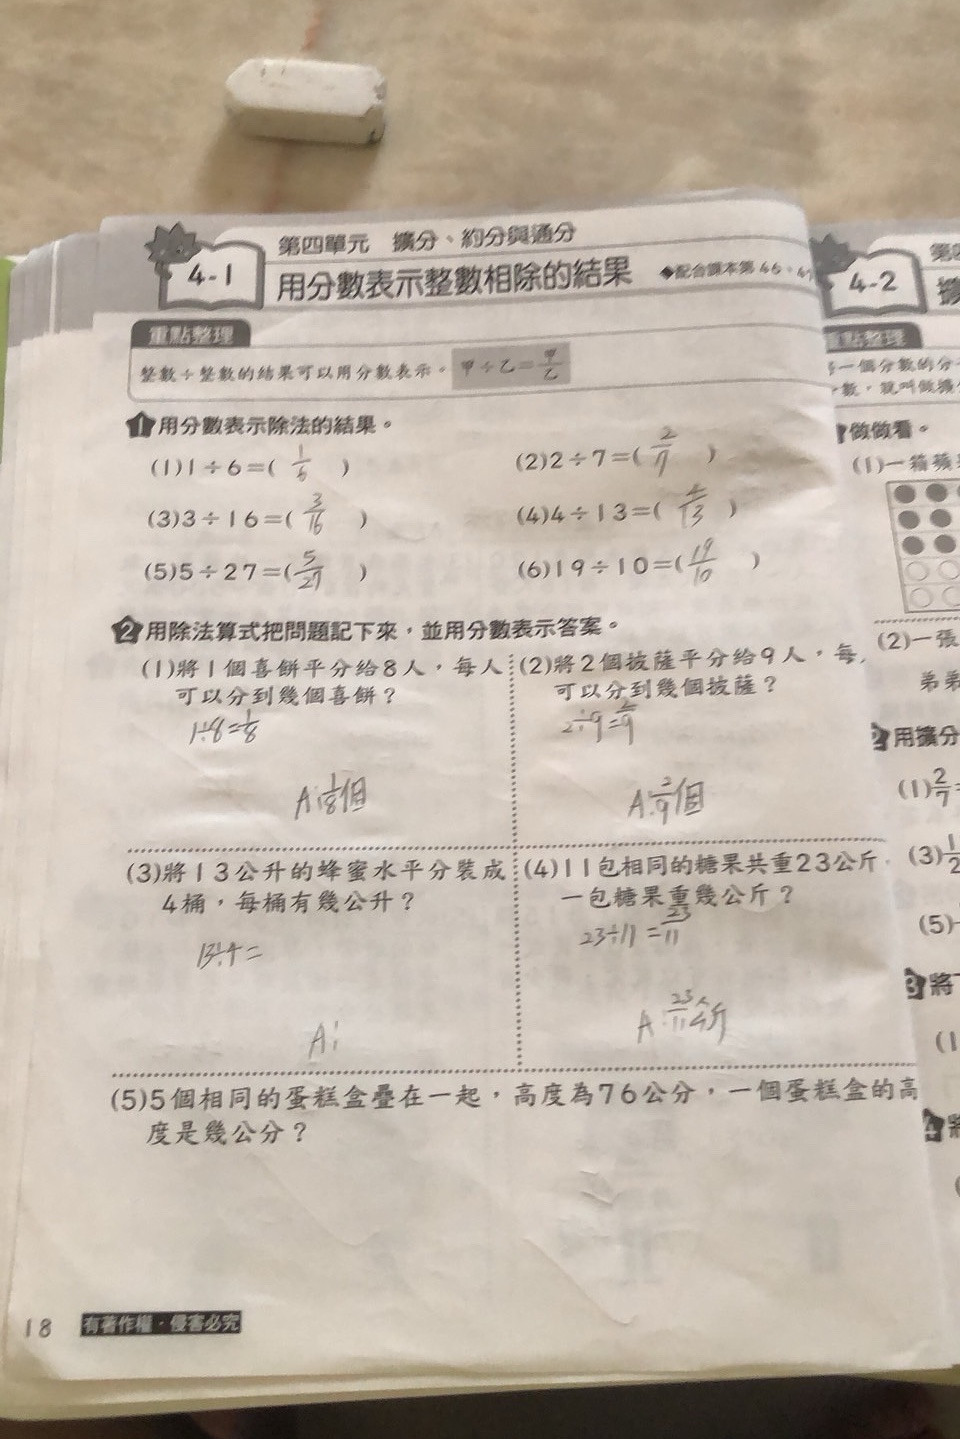 第四單元 擴分、約分與通分
4-1 用分數表示整數相除的結果 ◆配合課本第46、47
重點整理
整數÷整數的結果可以用分數表示。 甲÷乙=甲/乙
1 用分數表示除法的結果。
(1)1÷6=( 1/6 ) (2)2÷7=( 2/7 )
(3)3÷16=( 3/16 ) (4)4÷13=( 4/13 )
(5)5÷27=( 5/27 ) (6)19÷10=( 19/10 )
2 用除法算式把問題記下來，並用分數表示答案。
(1)將1個喜餅平分給8人，每人
可以分到幾個喜餅？
1÷8=1/8
A:1/8個
(2)將2個披薩平分給9人，每
可以分到幾個披薩？
2÷9=2/9
A:2/9個
(3)將13公升的蜂蜜水平分裝成
4桶，每桶有幾公升？
13÷4=
A:
(4)11包相同的糖果共重23公斤
一包糖果重幾公斤？
23÷11=23/11
A:23/11公斤
(5)5個相同的蛋糕盒疊在一起，高度為76公分，一個蛋糕盒的高
度是幾公分？
18 有著作權·侵害必究
第
4-2
重點整理
一個分數的分
數，就叫做擴
做做看。
(1)一箱蘋
(2)一張
弟弟
2 用擴分
(1)2/7=
(3)
(5)
3 將
(1
4 將